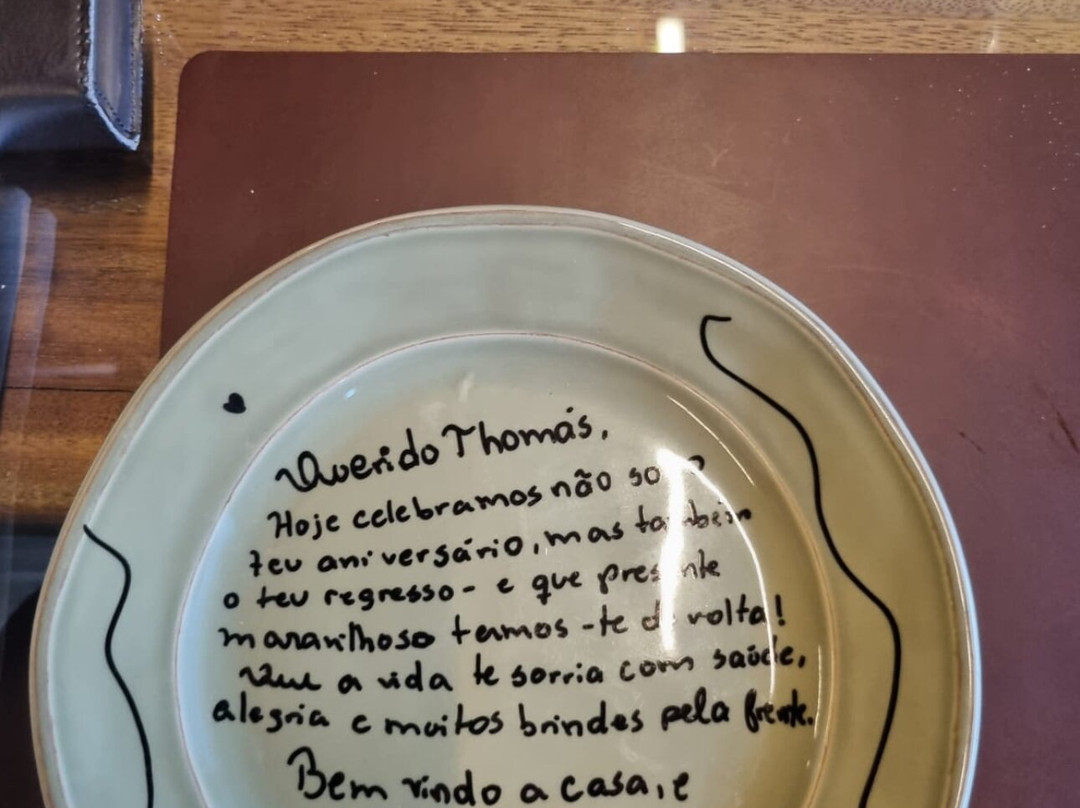 Querido Thomás,
Hoje celebramos não só o
teu aniversário, mas também
o teu regresso - e que presente
maravilhoso termos-te de volta!
Que a vida te sorria com saúde,
alegria e muitos brindes pela frente.
Bem vindo a casa, e